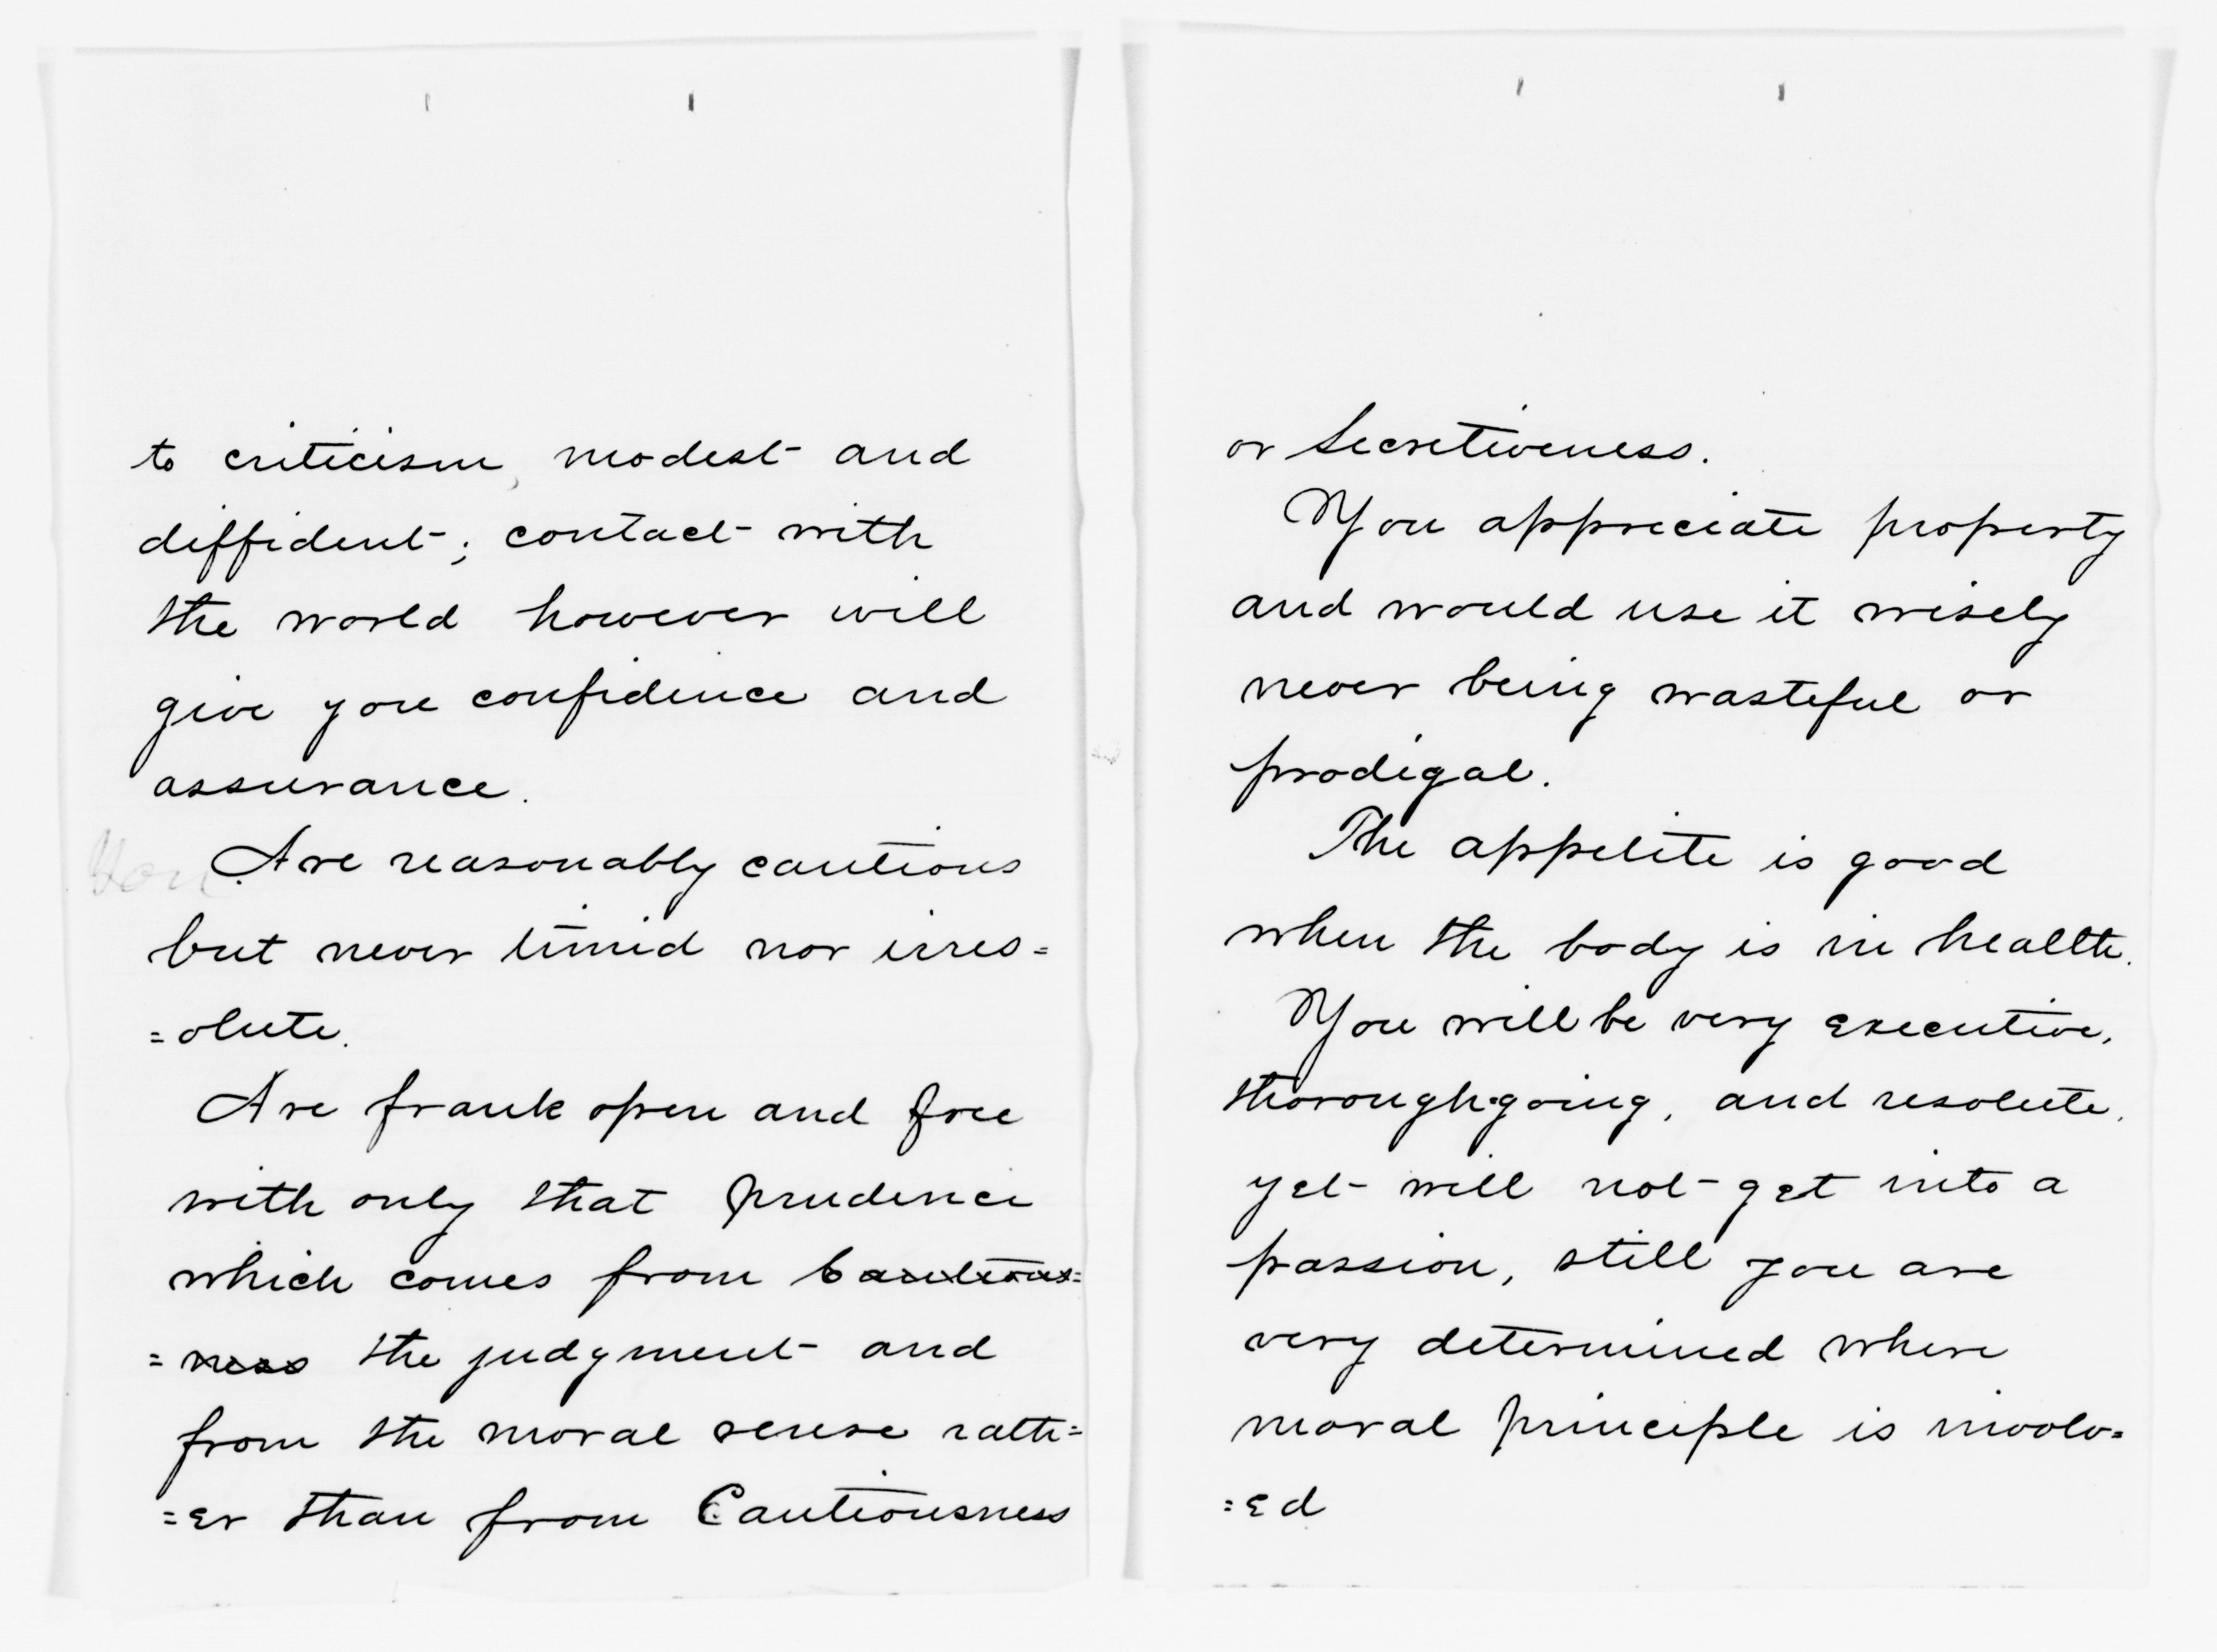 to criticism, modest and
diffident; contact with
the world however will
give you confidence and
assurance.
You Are reasonably cautious
but never timid nor irres=
=olute.
Are frank open and free
with only that prudence
which comes from Cautious=
=ness the judgment and
from the moral sense rath=
=er than from Cautiousness
or Secretiveness.
You appreciate property
and would use it wisely
never being wasteful or
prodigal.
The appetite is good
when the body is in health.
You will be very executive,
thorough-going, and resolute,
yet will not get into a
passion, still you are
very determined where
moral principle is involv=
=ed